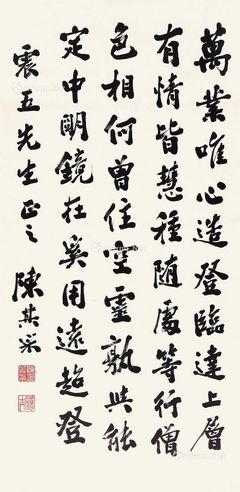 萬業唯心造登臨達上層
有情皆慧種隨處等行僧
色相何曾住空靈孰與能
定中明鏡在奚用遠超登
震五先生正之 陳其采